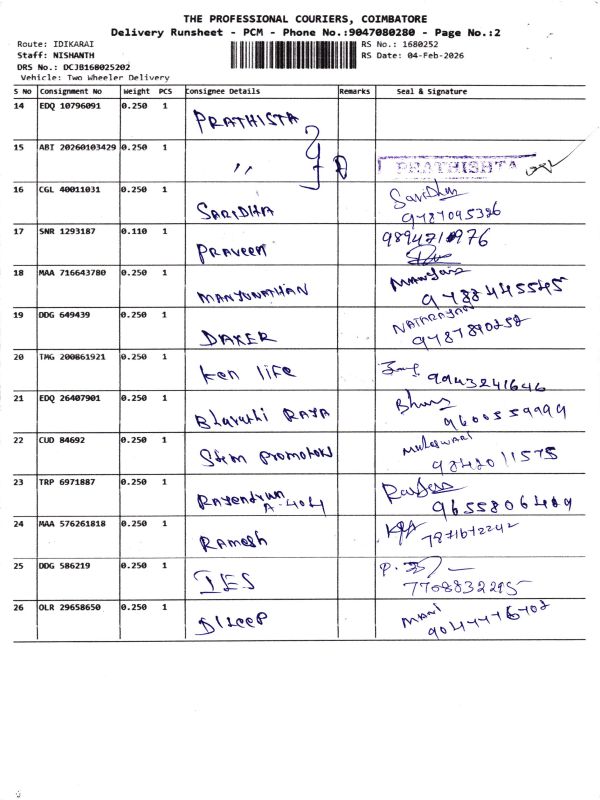 THE PROFESSIONAL COURIERS, COIMBATORE
Delivery Runsheet - PCM - Phone No.:9047080280 - Page No.:2
Route: IDIKARAI RS No.: 1680252
Staff: NISHANTH RS Date: 04-Feb-2026
DRS No.: DCJB168025202
Vehicle: Two Wheeler Delivery
S No Consignment No Weight PCS Consignee Details Remarks Seal & Signature
14 EDQ 10796091 0.250 1 PRATHISTA
15 ABI 20260103429 0.250 1 ,, PRATHISHTA
16 CGL 40011031 0.250 1 SARIDHA Saridha
9787095326
17 SNR 1293187 0.110 1 PRAVEEN
18 MAA 716643780 0.250 1 MANJUNATHAN
9788445545
19 DDG 649439 0.250 1 DAKER NATARAJAN
9787890252
20 TMG 200861921 0.250 1 Ken life 9943241646
21 EDQ 26407901 0.250 1 Bharathi RAJA
9600559999
22 CUD 84692 0.250 1 Stem promotors
9842011575
23 TRP 6971887 0.250 1 Rajendran
A-404 9655806409
24 MAA 576261818 0.250 1 RAMESH 7871672242
25 DDG 586219 0.250 1 IES
7708832295
26 OLR 29658650 0.250 1 DILEEP MANI